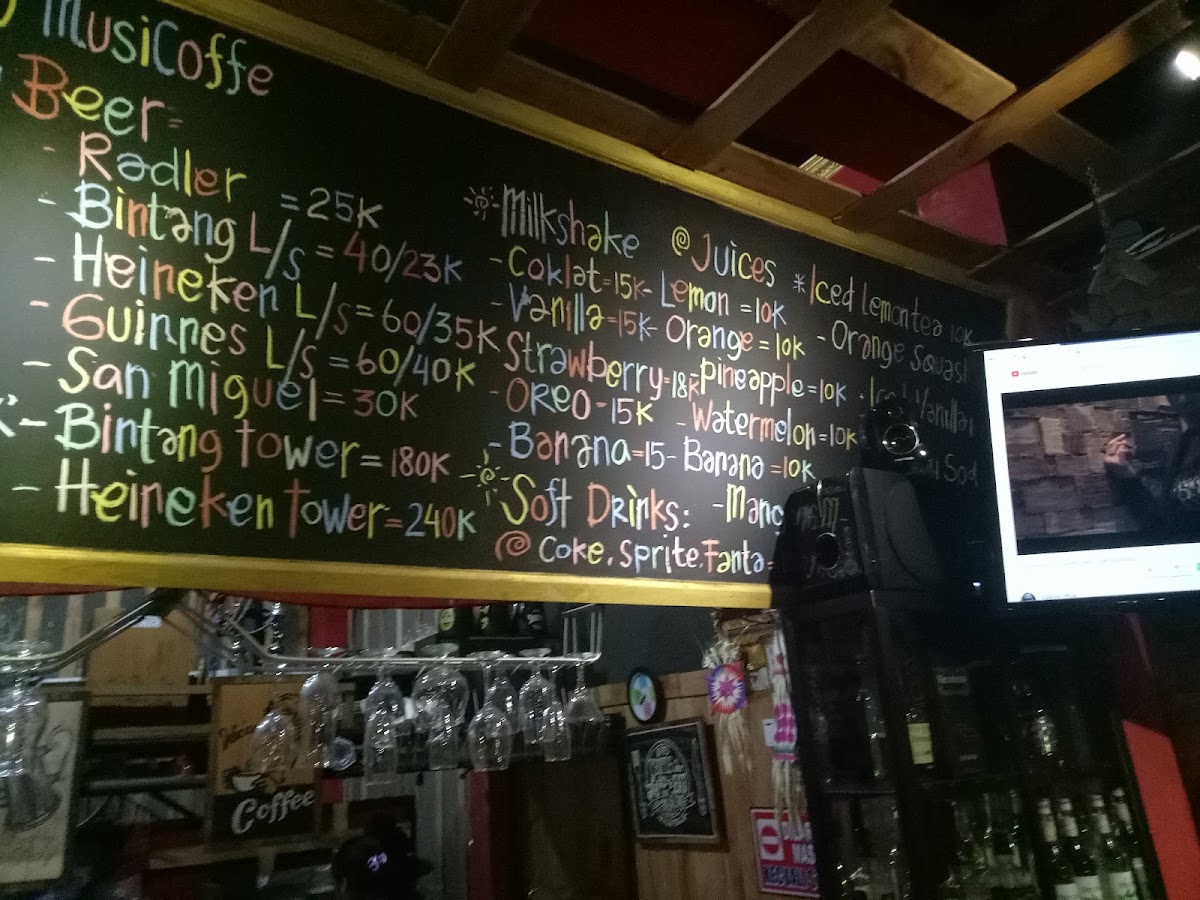 MusiCoffe
Beer=
- Radler = 25K
- Bintang L/s = 40/23K
- Heineken L/s = 60/35K
- Guinnes L/s = 60/40K
- San Miguel = 30K
- Bintang tower = 180K
- Heineken tower = 240K
Milkshake
- Coklat = 15K
- Vanilla = 15K
- Strawberry = 18K
- Oreo - 15K
- Banana = 15
Soft Drinks:
@ Coke, Sprite, Fanta =
@ Juices
- Lemon = 10K
- Orange = 10K
- Pineapple = 10K
- Watermelon = 10K
- Banana = 10K
* Iced Lemontea 10K
- Orange Squash
Coffee